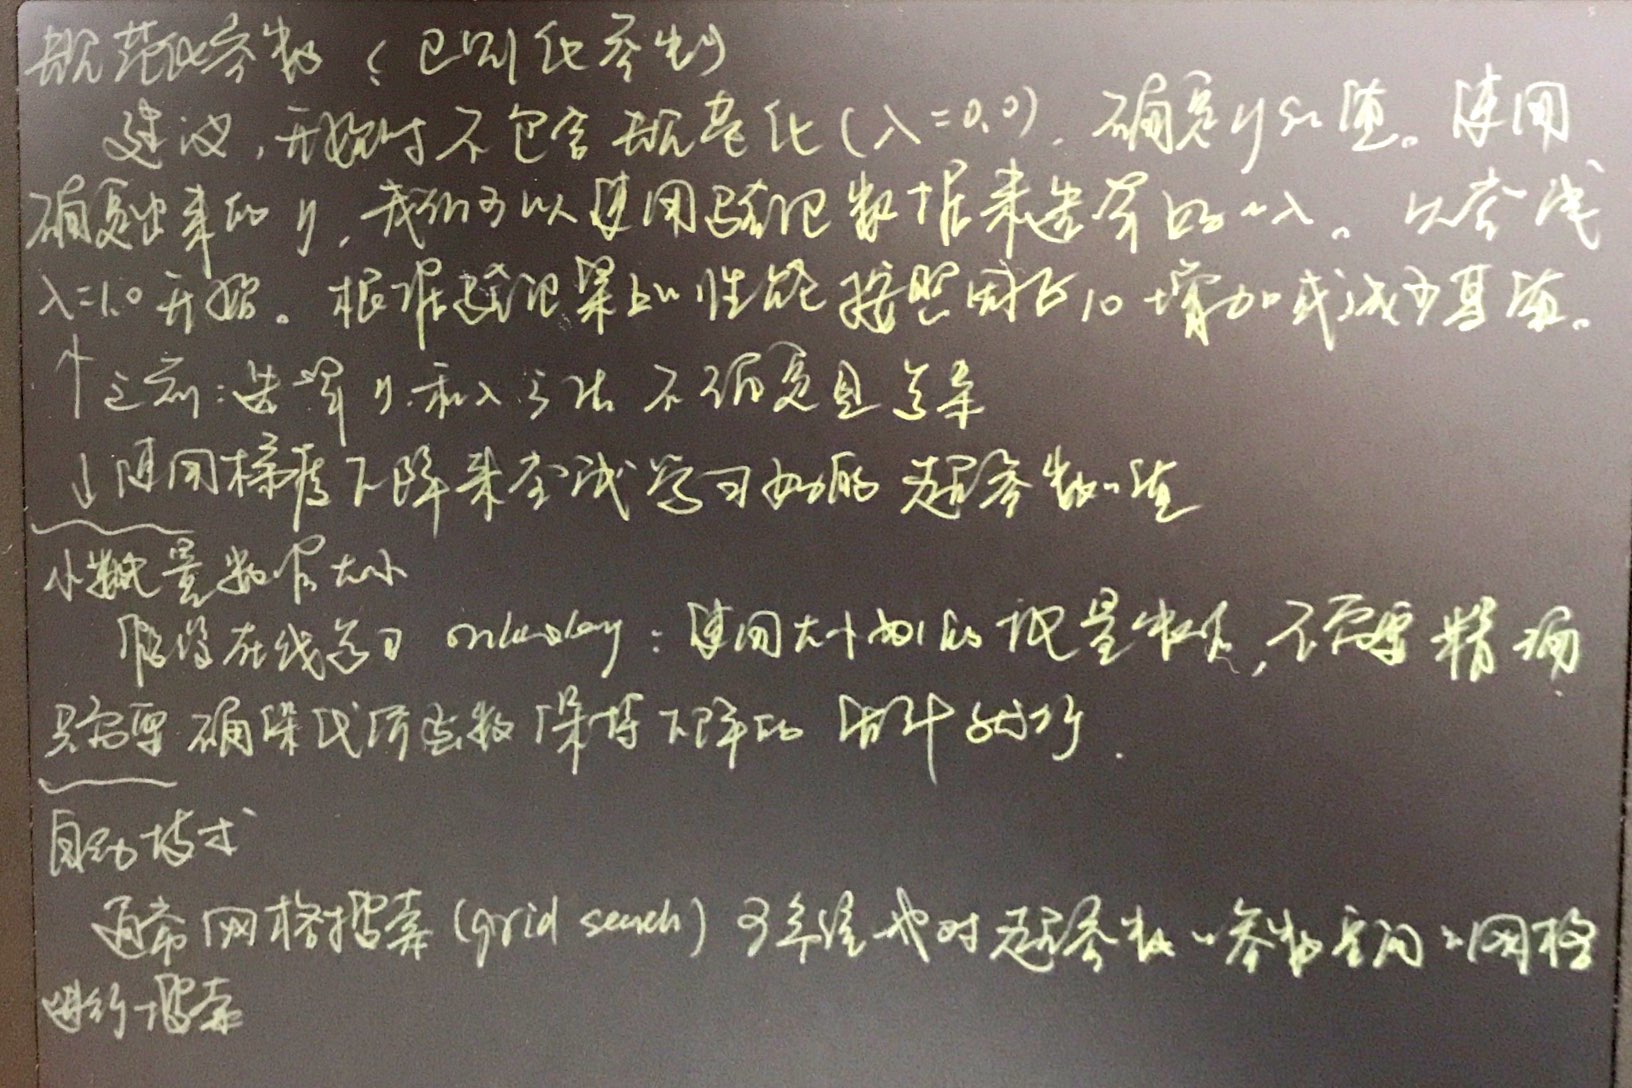 规范化参数（已别化参数）
建议，开始时不包含规范化（λ=0.0），确定η的值。使用
确定出来的η，我们可以使用验证数据来选择好的λ。以尝试
λ=1.0开始。根据验证集上的性能按照因子10增加或减少其值。
↑之前：选择η和λ方法不确定且复杂
↓使用梯度下降来尝试学习好的超参数的值
小批量数据大小
在线学习：使用大小为1的批量数据，不需要精确
只需要确保代价函数保持下降的
自动技术
通常网格搜索（grid search）可系统地对超参数的参数空间的网格
进行搜索